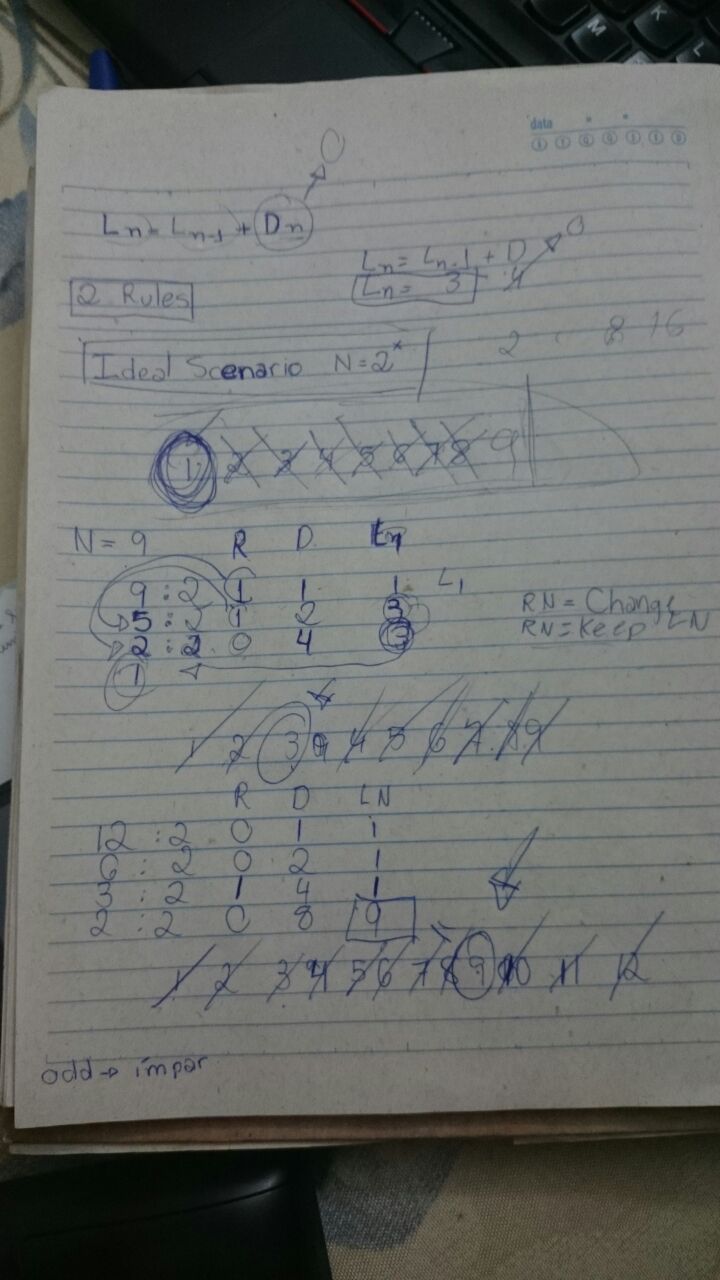 data
Ln = Ln-1 + Dn → 0
Ln = Ln-1 + D → 0
Ln = 3
2 Rules
Ideal Scenario N = 2^x
2 8 16
1 2 3 4 5 6 7 8 9
N = 9 R D Ln
9 : 2 1 1 1 L1
5 : 2 1 2 3 RN = Change
2 : 2 0 4 3 RN = Keep LN
1
1 2 3 4 5 6 7 8 9
R D LN
12 : 2 0 1 1
6 : 2 0 2 1
3 : 2 1 4 1
2 : 2 0 8 9
1 2 3 4 5 6 7 8 9 10 11 12
odd → impar